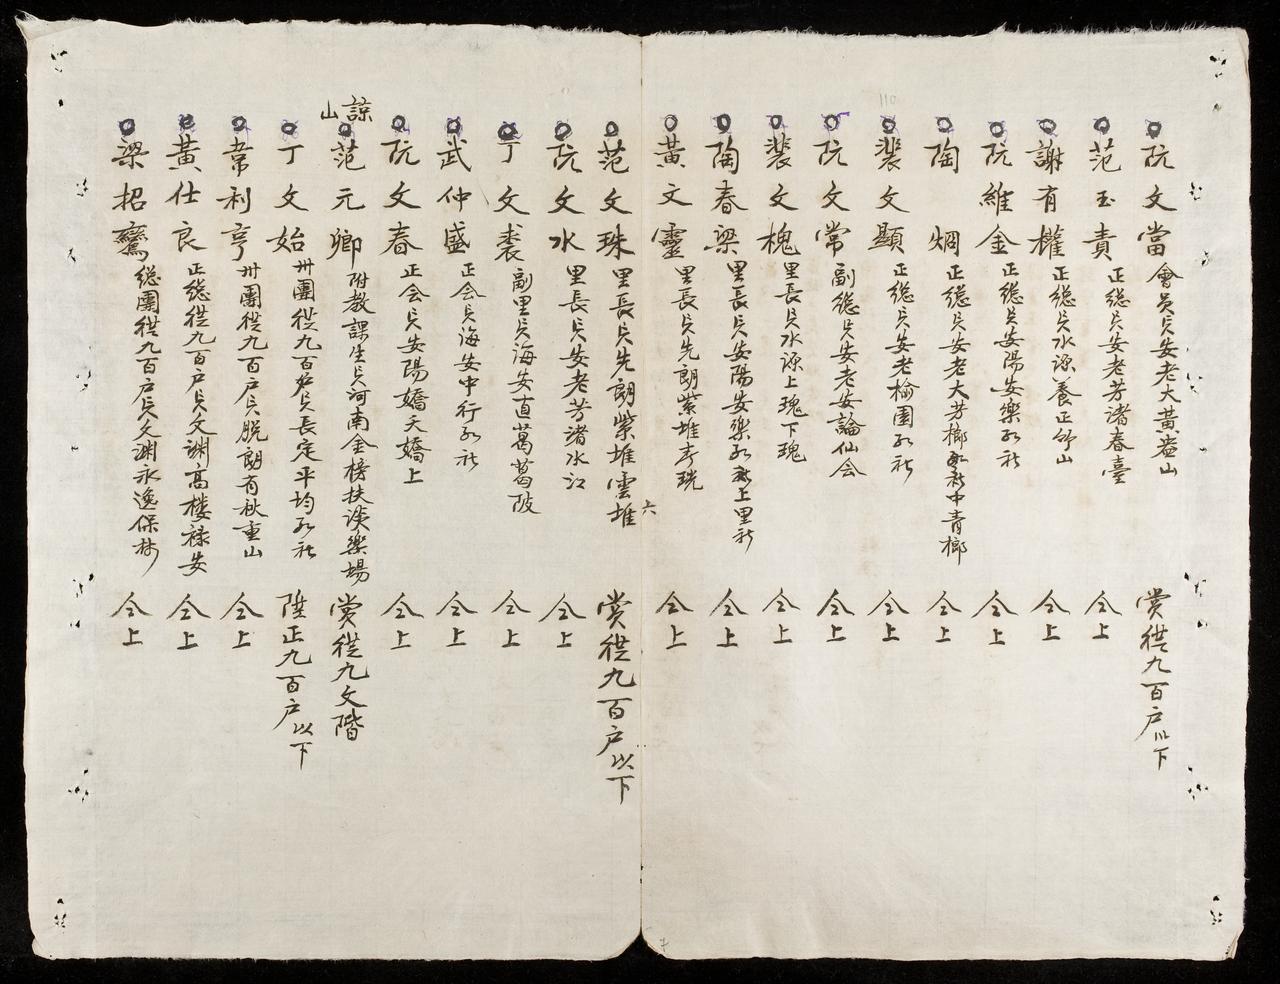 110
阮文當 會員員安老大黃益山 賞從九百户以下
范玉責 正總員安老芳渚春臺 仝上
謝有權 正總員水源養正 山 仝上
阮維金 正總員安陽安樂 社 仝上
陶炯 正總員安老大芳榔 中青榔 仝上
裴文顯 正總員安老榆園 社 仝上
阮文常 副總員安老安論仙会 仝上
裴文槐 里長員水源上瑰下瑰 仝上
陶春梁 里長員安陽安樂 上里 仝上
黃文靈 里長員先朗紫堆 仝上
六
范文珠 里長員先朗紫堆雲堆 賞從九百户以下
阮文水 里長員安老芳渚水江 仝上
丁文裘 副里員海安直葛葛陂 仝上
武仲盛 正会員海安中行 社 仝上
阮文春 正会員安陽嬌夭嬌上 仝上
諒山
范元卿 附教課生員河南金榜扶談樂場 賞從九文階
丁文始 卅團從九百户員長定平均 社 陞正九百户以下
常利亨 卅團從九百户員脱朗有秋重山 仝上
黃仕良 正總從九百户員文淵高樓禄安 仝上
梁招 總團從九百户員文淵永逸保林 仝上